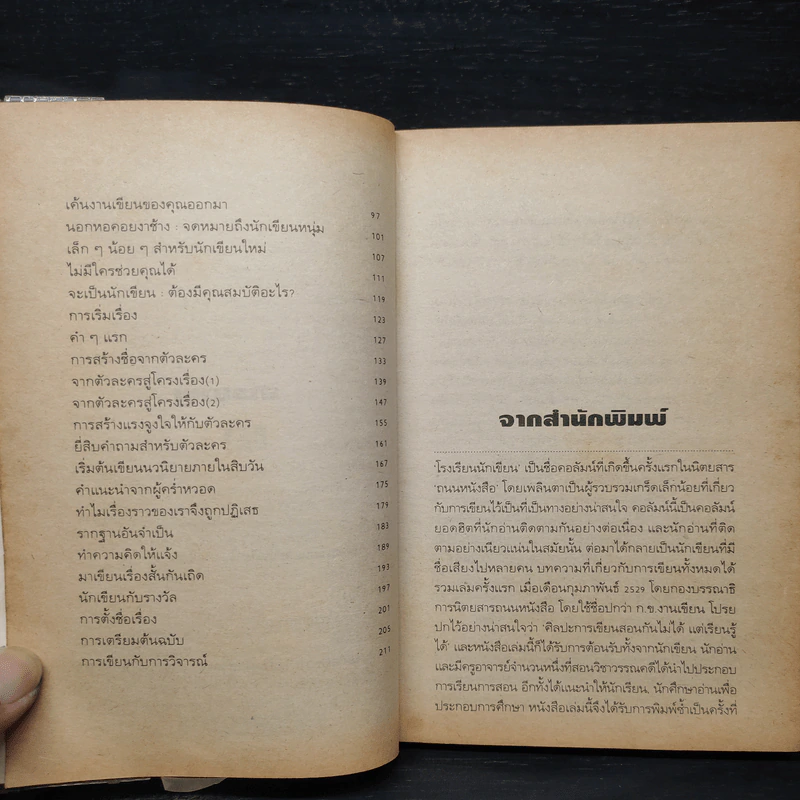 เค้นงานเขียนของคุณออกมา 97
นอกหอคอยงาช้าง : จดหมายถึงนักเขียนหนุ่ม 101
เล็ก ๆ น้อย ๆ สำหรับนักเขียนใหม่ 107
ไม่มีใครช่วยคุณได้ 111
จะเป็นนักเขียน : ต้องมีคุณสมบัติอะไร? 119
การเริ่มเรื่อง 123
คำ ๆ แรก 127
การสร้างชื่อจากตัวละคร 133
จากตัวละครสู่โครงเรื่อง(1) 139
จากตัวละครสู่โครงเรื่อง(2) 147
การสร้างแรงจูงใจให้กับตัวละคร 155
ยี่สิบคำถามสำหรับตัวละคร 161
เริ่มต้นเขียนนวนิยายภายในสิบวัน 167
คำแนะนำจากผู้คร่ำหวอด 175
ทำไมเรื่องราวของเราจึงถูกปฏิเสธ 179
รากฐานอันจำเป็น 183
ทำความคิดให้แจ้ง 189
มาเขียนเรื่องสั้นกันเถิด 193
นักเขียนกับรางวัล 197
การตั้งชื่อเรื่อง 201
การเตรียมต้นฉบับ 205
การเขียนกับการวิจารณ์ 211
จากสำนักพิมพ์
'โรงเรียนนักเขียน' เป็นชื่อคอลัมน์ที่เกิดขึ้นครั้งแรกในนิตยสาร
'ถนนหนังสือ' โดยเพลินตาเป็นผู้รวบรวมเกร็ดเล็กน้อยที่เกี่ยว
กับการเขียนไว้เป็นที่เป็นทางอย่างน่าสนใจ คอลัมน์นี้เป็นคอลัมน์
ยอดฮิตที่นักอ่านติดตามกันอย่างต่อเนื่อง และนักอ่านที่ติด
ตามอย่างเนียวแน่นในสมัยนั้น ต่อมาได้กลายเป็นนักเขียนที่มี
ชื่อเสียงไปหลายคน บทความที่เกี่ยวกับการเขียนทั้งหมดได้
รวมเล่มครั้งแรก เมื่อเดือนกุมภาพันธ์ 2529 โดยกองบรรณาธิ
การนิตยสารถนนหนังสือ โดยใช้ชื่อปกว่า ก.ข.งานเขียน โปรย
ปกไว้อย่างน่าสนใจว่า 'ศิลปะการเขียนสอนกันไม่ได้ แต่เรียนรู้
ได้' และหนังสือเล่มนี้ก็ได้รับการต้อนรับทั้งจากนักเขียน นักอ่าน
และมีครูอาจารย์จำนวนหนึ่งที่สอนวิชาวรรณคดีได้นำไปประกอบ
การเรียนการสอน อีกทั้งได้แนะนำให้นักเรียน, นักศึกษาอ่านเพื่อ
ประกอบการศึกษา หนังสือเล่มนี้จึงได้รับการพิมพ์ซ้ำเป็นครั้งที่